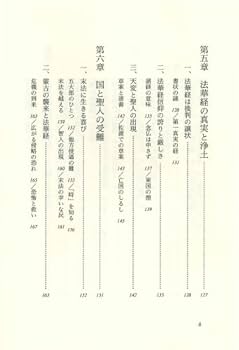 第五章 法華経の真実と浄土 127
一、法華経は後判の譲状 128
書状の謎 128／第一真実の経 131
二、法華経信仰の誇りと厳しさ 135
誹謗の意味 135／念仏は申さず 137／東国の僧 139
三、天変と聖人の出現 142
草案と清書 142／佐渡での草案 143／亡国のしるし 145
第六章 国と聖人の受難 151
一、末法に生きる喜び 152
五大部のひとつ 152／「時」を知る 156
末法を越える 158／智人の出現 160／末法の幸いな民 161
二、蒙古の襲来と法華経 163
危機の到来 163／広がる侵略の恐れ 165／恐怖と救い 167